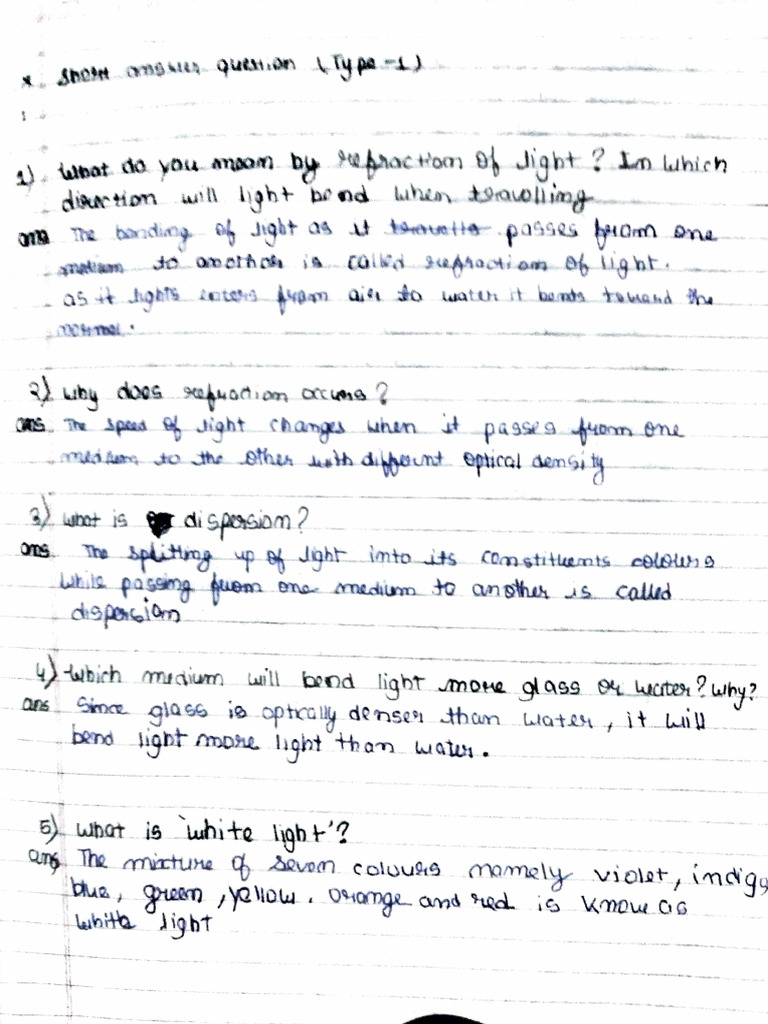 * Short answer question (Type-1)
1) What do you mean by refraction of light? In which
direction will light bend when travelling
ans The bending of light as it passes from one
medium to another is called refraction of light.
as it lights enters from air to water it bends toward the
normal.
2) Why does refraction occurs?
ans. The speed of light changes when it passes from one
medium to the other with different optical density
3) What is dispersion?
ans. The splitting up of light into its constituents colours
While passing from one medium to another is called
dispersion
4) Which medium will bend light more glass or water? Why?
ans Since glass is optically denser than water, it will
bend light more light than water.
5) What is 'white light'?
ans The mixture of seven colours namely violet, indigo
blue, green, yellow. orange and red is know as
white light